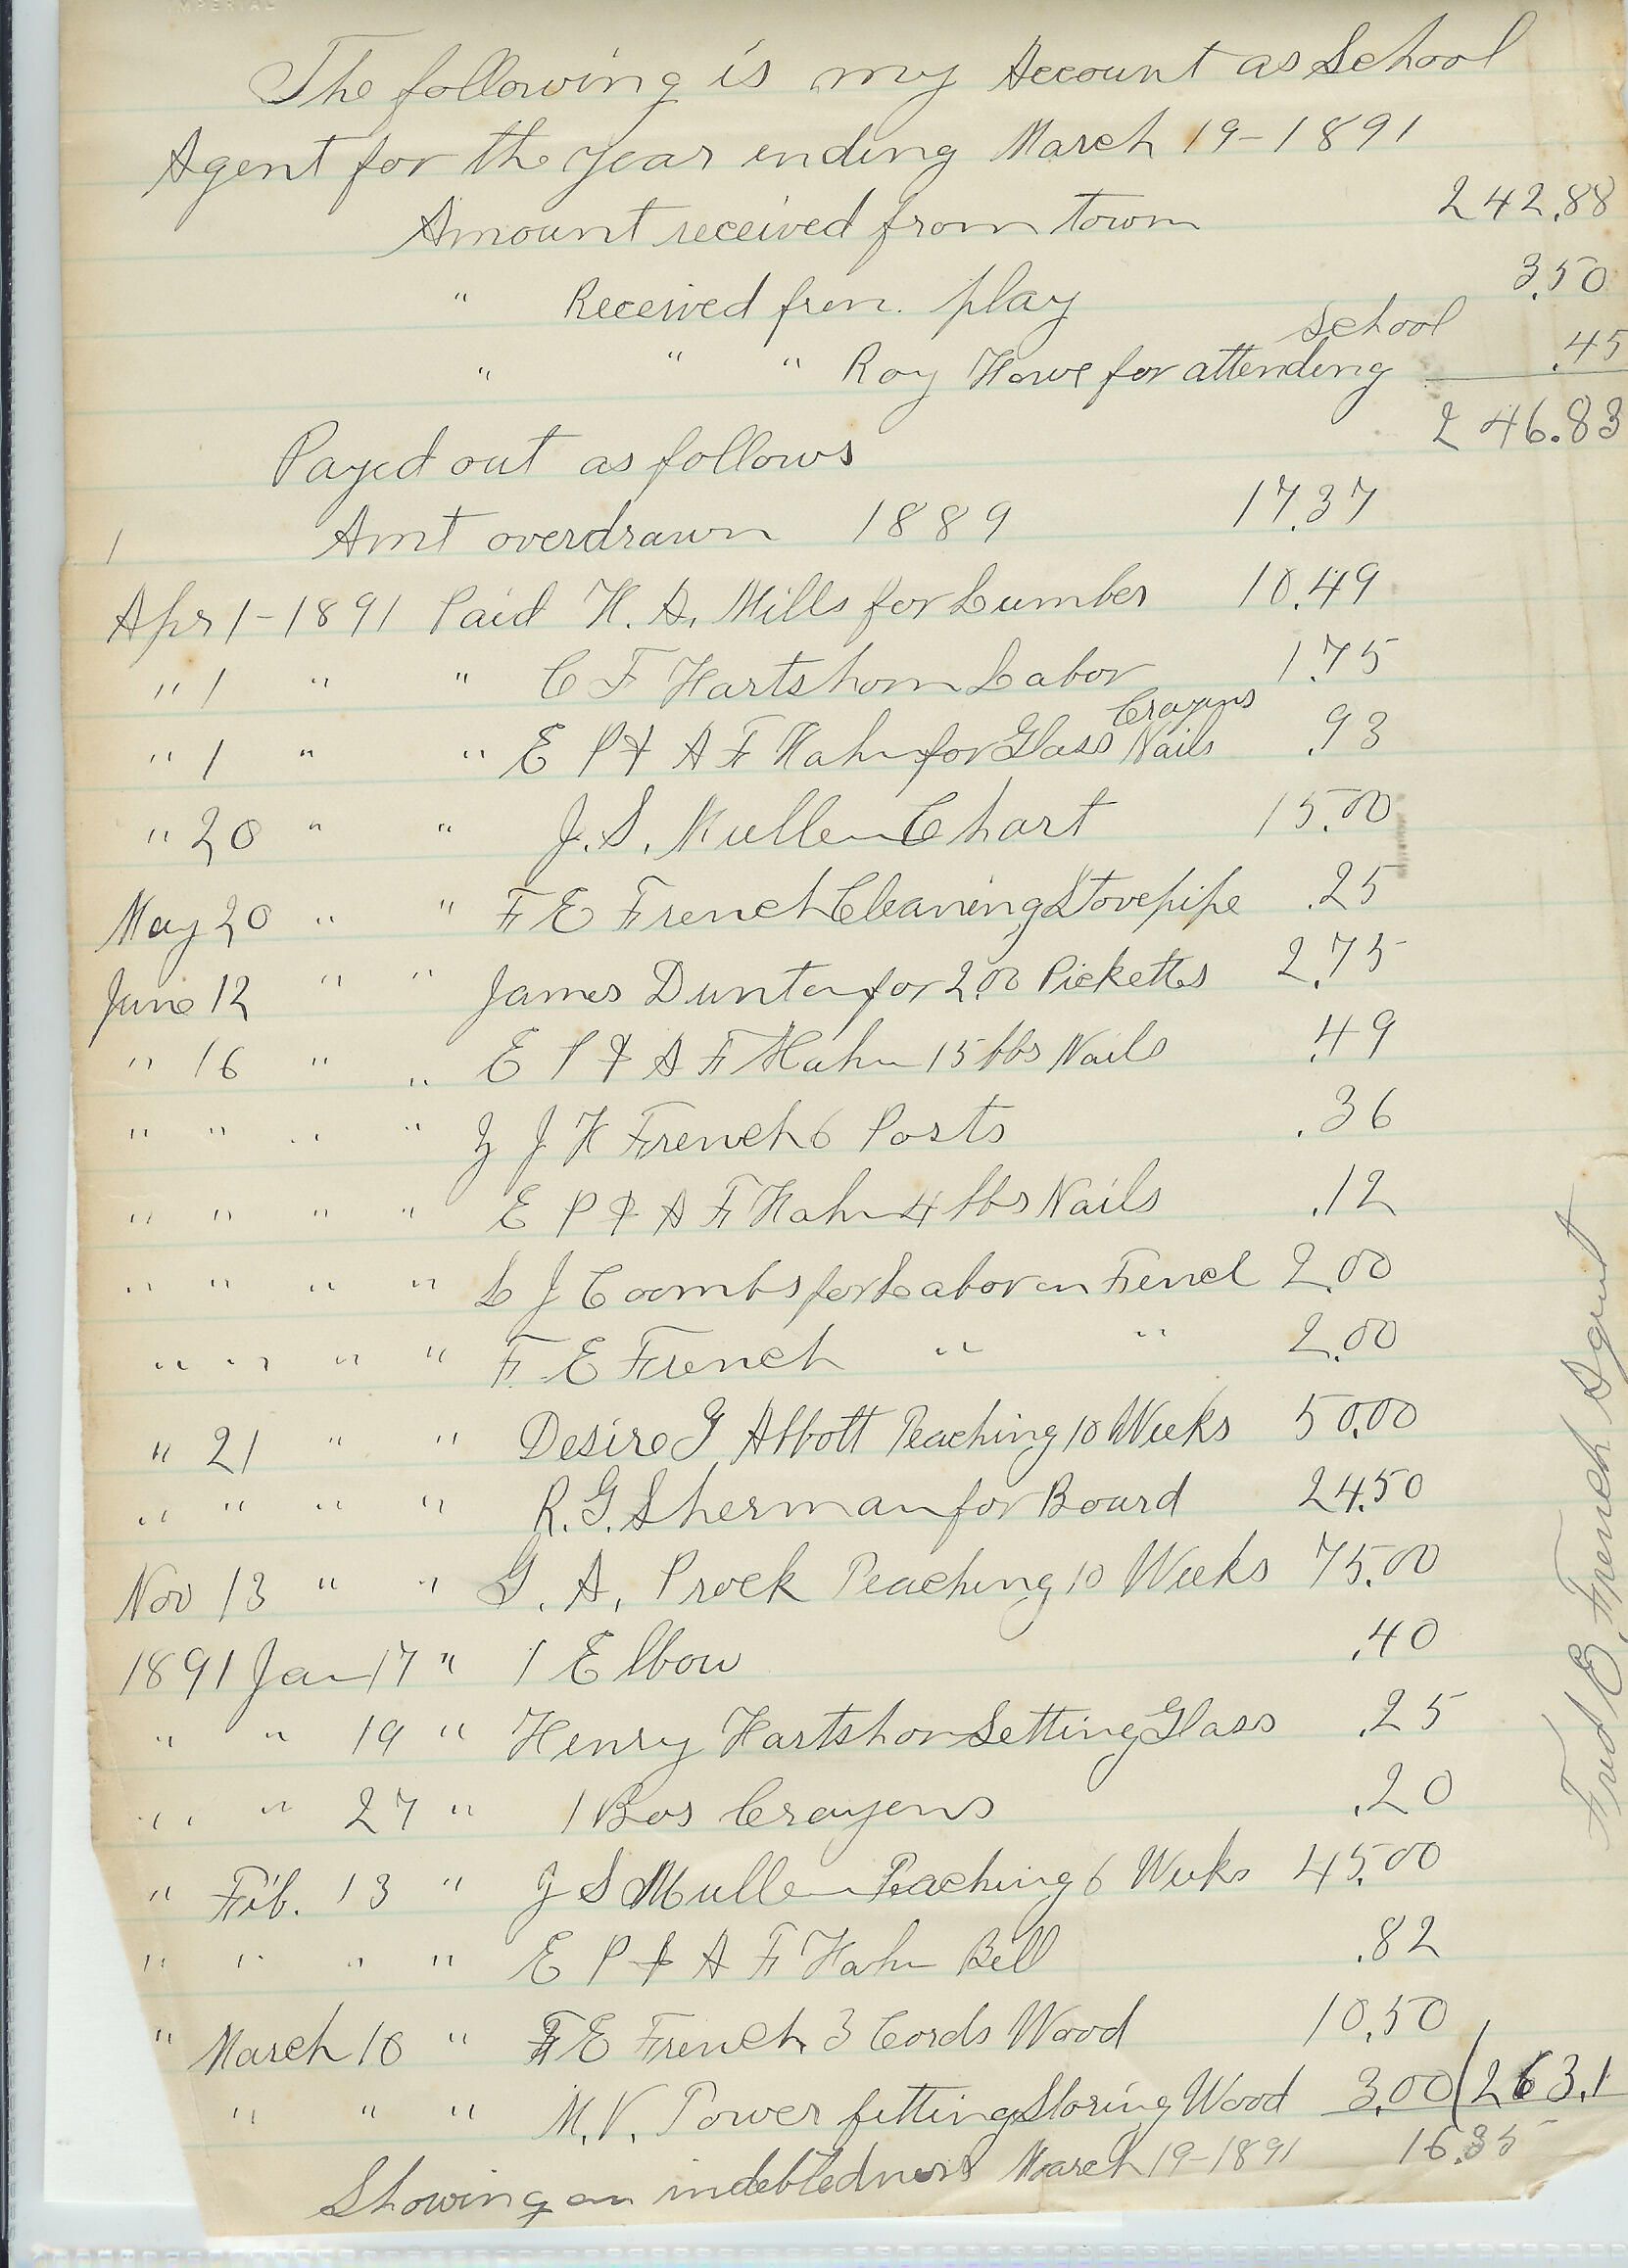 IMPERIAL
The following is my Account as School
Agent for the year ending March 19-1891
Amount received from town 242.88
" Received from play 3.50
school
" " " Roy Howe for attending .45
246.83
Payed out as follows
1 Amt overdrawn 1889 17.37
Apr 1-1891 Paid H. A. Mills for Lumber 10.49
" 1 " " C F Hartshorn Labor 1.75
Crayons
" 1 " " E P & A F Hahn for Glass Nails .93
" 20 " " J. S. Mullen Chart 15.00
May 20 " " F E French Cleaning Stovepipe .25
June 12 " " James Dunton for 200 Picketts 2.75
" 16 " " E P & A F Hahn 15 lbs Nails .49
" " " " Z J H French 6 Posts .36
" " " " E P & A F Hahn 4 lbs Nails .12
" " " " L J Coombs for Labor on Fence 2.00
" " " " F E French " " 2.00
" 21 " " Desire G Abbott Teaching 10 Weeks 50.00
" " " " R. G. Sherman for Board 24.50
Nov 13 " " G. A. Prock Teaching 10 Weeks 75.00
1891 Jan 17 " 1 Elbow .40
" " 19 " Henry Hartshorn Setting Glass .25
" " 27 " 1 Box Crayens .20
" Feb. 13 " J S Mullen Teaching 6 Weeks 45.00
" " " " E P & A F Hahn Bell .82
" March 10 " F E French 3 Cords Wood 10.50
" " " M. V. Power fitting Storing Wood 3.00 263.1
Showing an indebtedness March 19-1891 16.35
Fred E. French Agent